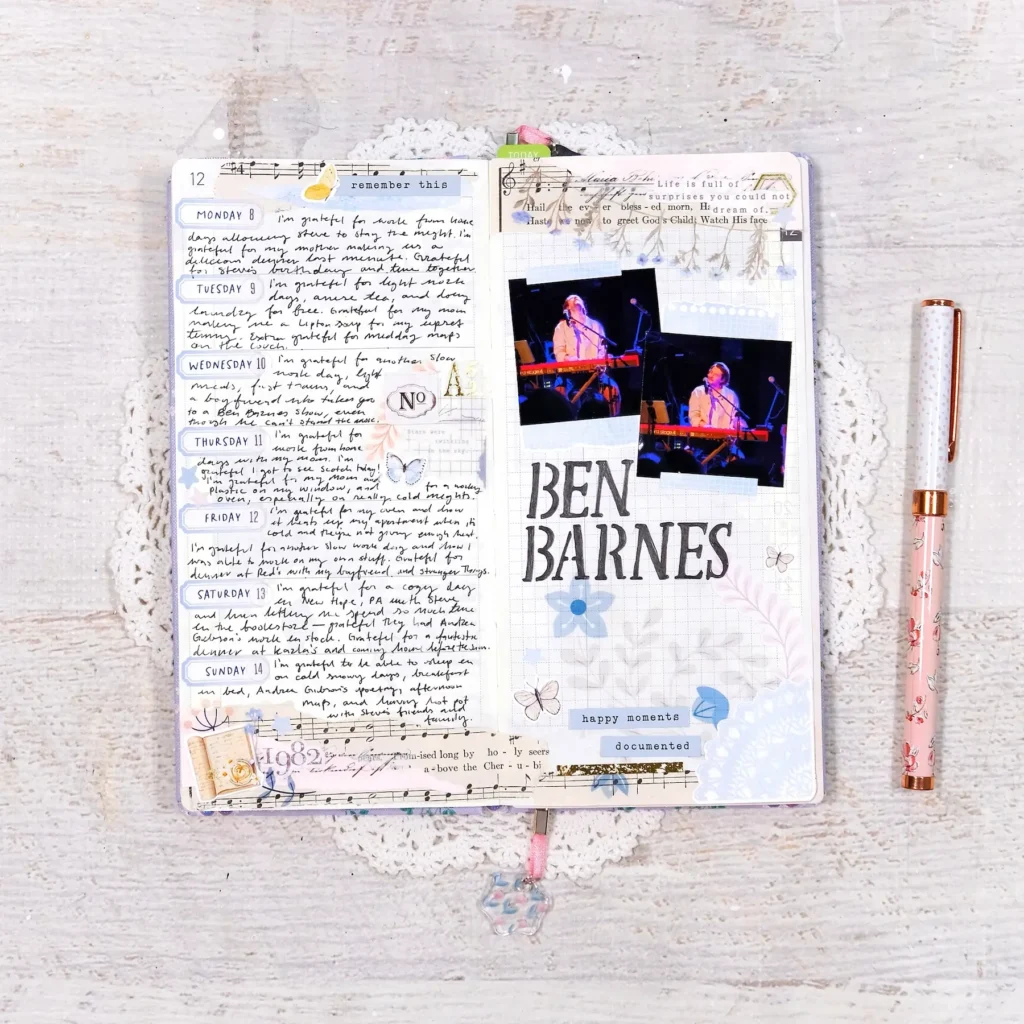 12
remember this
MONDAY 8
I'm grateful for work from home
days allowing Steve to stay the night. I'm
grateful for my mother making us a
delicious dinner last minute. Grateful
for Steve's birthday and time together
TUESDAY 9
I'm grateful for light work
days, anise tea, and doing
laundry for free. Grateful for my mom
making me a Lipton soup for my upset
tummy. Extra grateful for midday naps
on the couch.
WEDNESDAY 10
I'm grateful for another slow
work day, light
meals, fast trains, and
a boyfriend who takes you
to a Ben Barnes show, even
though he can't stand the music.
No
A
THURSDAY 11
I'm grateful for
work from home
days with my mom. I'm
grateful I got to see Scotch today!
I'm grateful for my mom and
plastic on my window, and for a working
oven, especially on really cold nights.
FRIDAY 12
I'm grateful for my oven and how
it heats up my apartment when it's
cold and they're not giving enough heat.
I'm grateful for another slow work day and how I
was able to work on my own stuff. Grateful for
dinner at Red's with my boyfriend and Stranger Things.
SATURDAY 13
I'm grateful for a cozy day
in New Hope, PA with Steve
and him letting me spend so much time
in the bookstore — grateful they had Andrea
Gibson's work in stock. Grateful for a fantastic
dinner at Karla's and coming home before the snow.
SUNDAY 14
I'm grateful to be able to sleep in
on cold snowy days, breakfast
in bed, Andrea Gibson's poetry, afternoon
naps, and having hot pot
with Steve's friends and
family.
1982
Prom-ised long by ho - ly seers
a-bove the Cher - u - bi
TODAY
Life is full of
surprises you could not
dream of.
Hail the ev - er bless - ed morn, H
Haste we now to greet God's Child; Watch His face
12
BEN
BARNES
happy moments
documented